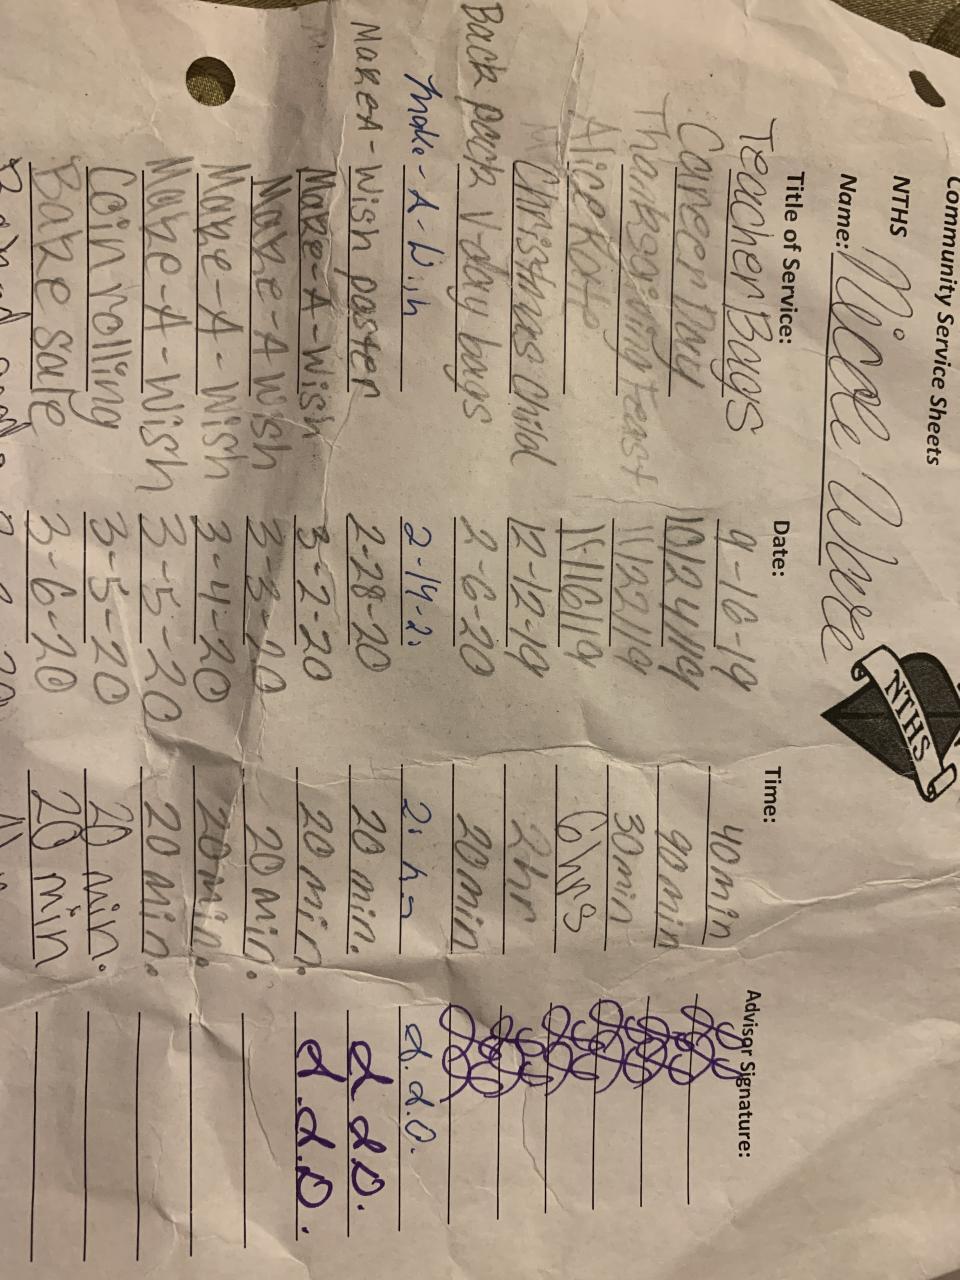 Community Service Sheets
NTHS
Name: Nicole
NTHS
Title of Service: Date: Time: Advisor Signature:
Teacher Bags 9-16-19 40min
Career Day 10/24/19 90min
Thanksgiving Feast 11/22/19 30min
Alice Kote 11/16/19 6hrs
Christmas Child 12-12-19 2hr
Back pack V-day bags 2-6-20 20min
Make-A-Wish 2-14-2
Make A-Wish poster 2-28-20 20 min. L L D.
Make-A-Wish 3-2-20 20 min. L.L.D.
Make-A Wish 3-3-20 20 min.
Make-A-Wish 3-4-20 20 min.
Make-A-Wish 3-5-20 20 min.
Coin rolling 3-5-20 20 min.
Bake sale 3-6-20 20 min